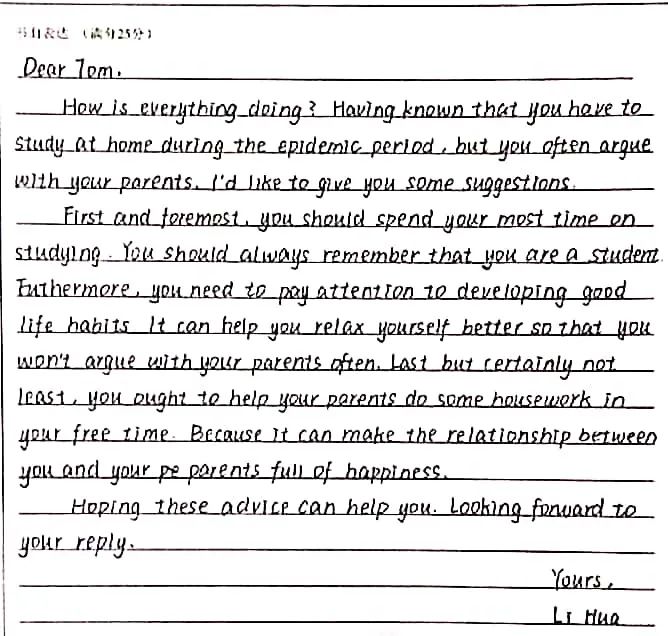 书面表达 (满分25分)
Dear Tom.
How is everything doing? Having known that you have to
study at home during the epidemic period, but you often argue
with your parents. I'd like to give you some suggestions.
First and foremost, you should spend your most time on
studying. You should always remember that you are a student.
Futhermore, you need to pay attention to developing good
life habits. It can help you relax yourself better so that you
won't argue with your parents often. Last but certainly not
least, you ought to help your parents do some housework in
your free time. Because it can make the relationship between
you and your pe parents full of happiness.
Hoping these advice can help you. Looking forward to
your reply.
Yours,
Li Hua